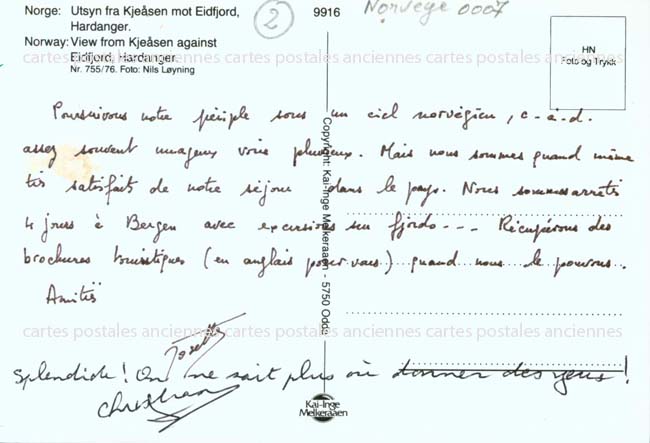 Norge: Utsyn fra Kjeåsen mot Eidfjord,
Hardanger.
Norway: View from Kjeåsen against
Eidfjord, Hardanger.
Nr. 755/76. Foto: Nils Løyning
2
9916
Norvege 0007
HN
Foto og Trykk
cartes postales anciennes cartes postales anciennes cartes postales anciennes
Poursuivons notre périple sous un ciel norvégien, c-à-d.
assez souvent nuageux voire pluvieux. Mais nous sommes quand même
très satisfait de notre séjour dans le pays. Nous sommes arrêtés
4 jours à Bergen avec excursions sur fjords --- Récupérons des
brochures touristiques (en anglais pour vous) quand nous le pouvons.
Amitiés
Copyright: Kai-Inge Melkeraaen - 5750 Odda
cartes postales anciennes cartes postales anciennes cartes postales anciennes
Josette
Splendide! On ne sait plus où donner des yeux!
Christian
Kai-Inge
Melkeraaen